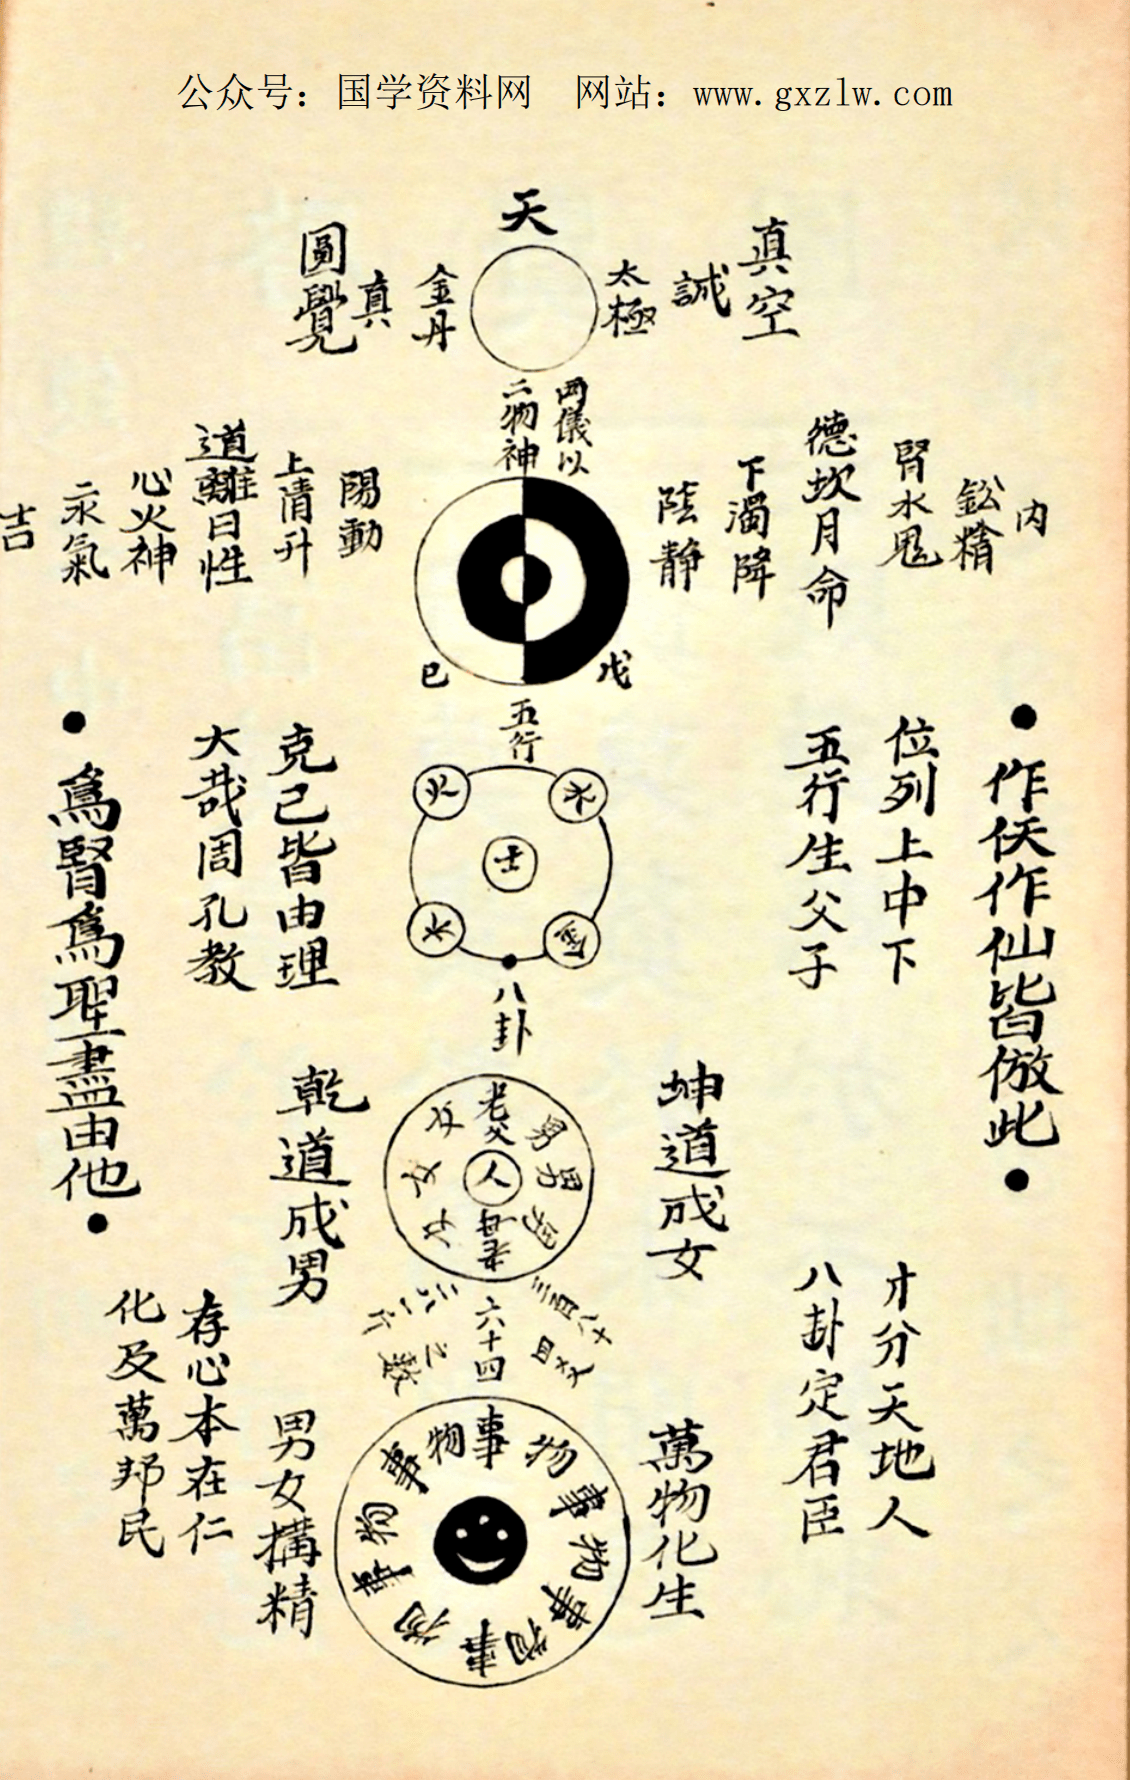 公众号：国学资料网　网站：www.gxzlw.com
天
真空
誠
太極
金丹
真
圓覺
兩儀以
二物神
内
鈆精
腎水鬼
德坎月命
下濁降
陰静
陽動
上清升
道離日性
心火神
汞氣
吉
戊
巳
五行
火
水
土
木
金
●作仸作仙皆倣此●
位列上中下
五行生父子
克己皆由理
大哉周孔教
●爲賢爲聖盡由他●
八卦
坤道成女
老父
男
男
男
人
老母
女
女
女
乾道成男
才分天地人
八卦定君臣
三百八十
四爻
六十四
二六一六
之數
存心本在仁
化及萬邦民
萬物化生
事物事物事物事物事物事物
男女搆精